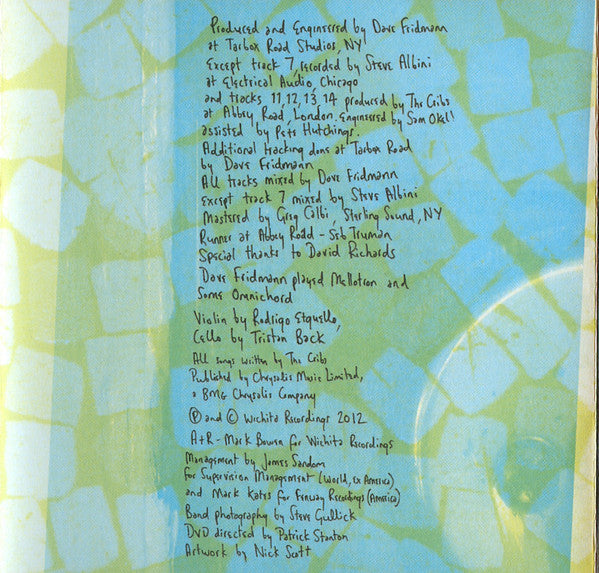 Produced and Engineered by Dave Fridmann
at Tarbox Road Studios, NY
Except track 7, recorded by Steve Albini
at Electrical Audio, Chicago
and tracks 11, 12, 13, 14 produced by The Cribs
at Abbey Road, London. Engineered by Sam Okell
assisted by Pete Hutchings.
Additional tracking done at Tarbox Road
by Dave Fridmann
All tracks mixed by Dave Fridmann
Except track 7 mixed by Steve Albini
Mastered by Greg Calbi, Sterling Sound, NY
Runner at Abbey Road - Seb Truman
Special thanks to David Richards
Dave Fridmann played Mellotron and
Some Omnichord
Violin by Rodrigo
Cello by Tristan Back
All songs written by The Cribs
Published by Chrysalis Music Limited,
a BMG Chrysalis Company
℗ and © Wichita Recordings 2012
A+R - Mark Bowen for Wichita Recordings
Management by James Sandom
for Supervision Management (World, ex America)
and Mark Kates for Fenway Recordings (America)
Band photography by Steve Gullick
DVD directed by Patrick Stanton
Artwork by Nick Scott